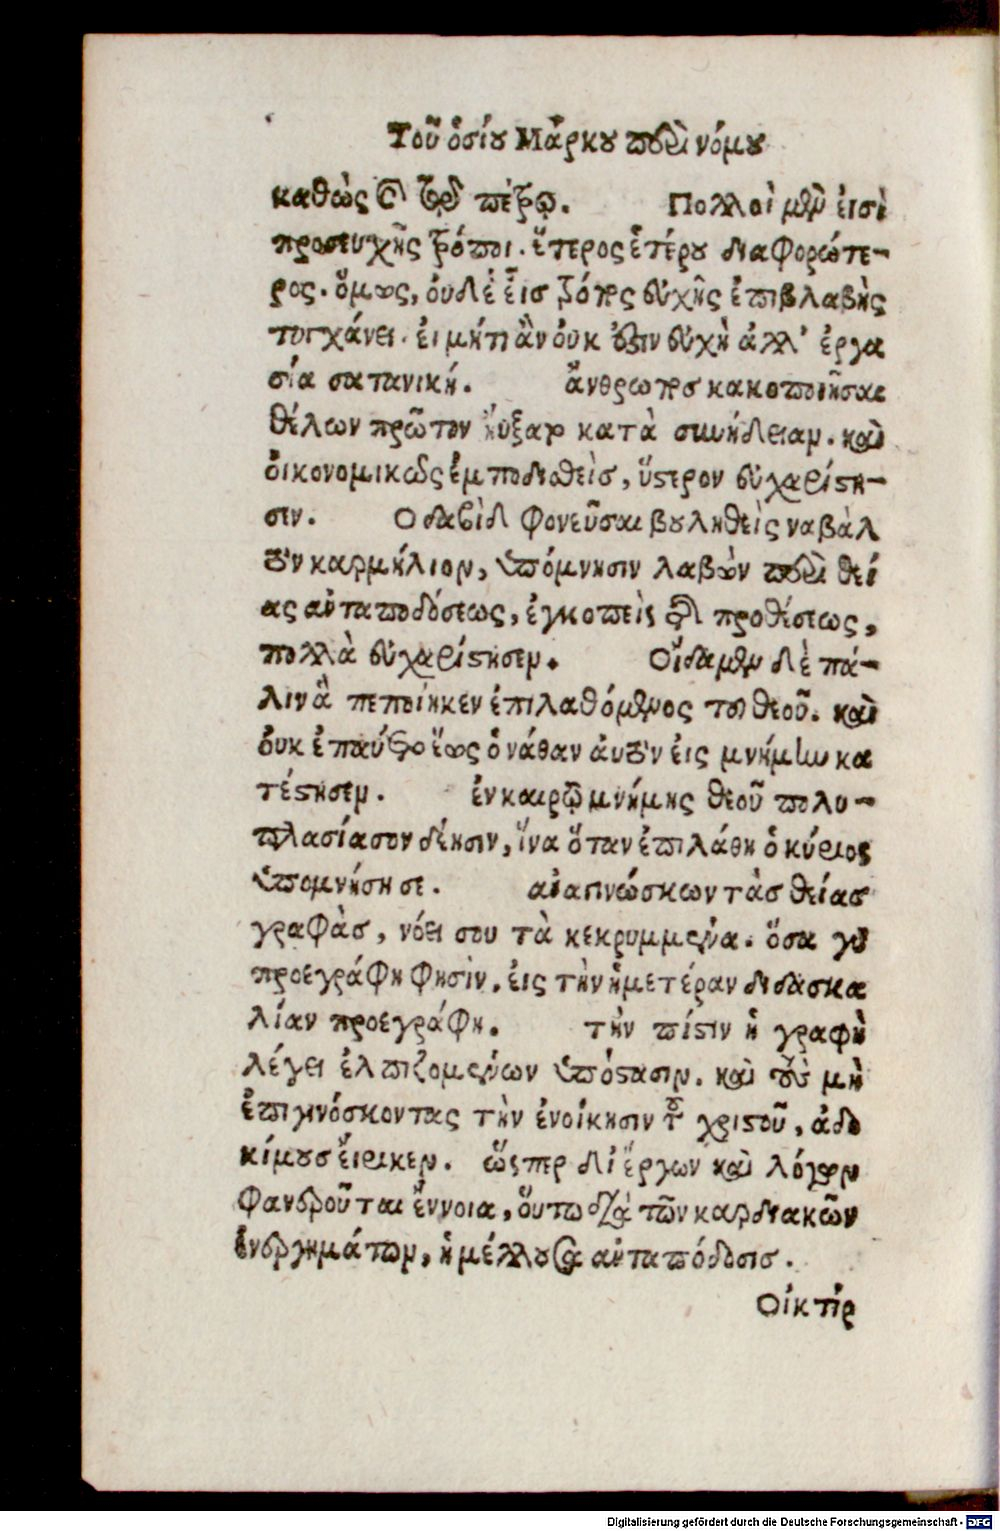 Τοῦ ὁσίου Μάρκου περὶ νόμου
καθὼς καὶ τῷ πέτρῳ. Πολλοὶ μὲν εἰσὶ
προσευχῆς τρόποι. ἕτερος ἑτέρου διαφορώτε-
ρος. ὅμως, ὀυδὲ εἷισ τρόπος εὐχῆς ἐπιβλαβὴς
τυγχάνει. ἐι μήτι ἂν ὀυκ ἔστιν εὐχὴ ἀλλ' ἐργα
σία σατανική. ἄνθρωποσ κακοποιῆσαι
θέλων πρῶτον ηὔξατο κατὰ συνήθειαν. καὶ
ὀικονομικῶς ἐμποδισθεὶσ, ὕστερον εὐχαρίστη-
σιν. Ο δαβὶδ φονεῦσαι βουληθεὶς ναβὰλ
τὸν καρμήλιον, ὑπόμνησιν λαβὼν περὶ θεί
ας ἀνταποδόσεως, ἐγκοπεὶς τῆς προθέσεως,
πολλὰ εὐχαρίστησεν. Οἴδαμεν δὲ πά-
λιν ἃ πεποίηκεν ἐπιλαθόμενος τοῦ θεοῦ. καὶ
ὀυκ ἐπαύσατο ἕως ὁ νάθαν ἀυτὸν ἐις μνήμην κα
τέστησεν. ἐν καιρῷ μνήμης θεοῦ πολυ-
πλασίασον δέησιν, ἵνα ὅταν ἐπιλάθη ὁ κύριος
ὑπομνήση σε. ἀναγινώσκων τὰσ θείας
γραφὰσ, νόει σου τὰ κεκρυμμένα. ὅσα γὰρ
προεγράφη φησὶν, ἐις τὴν ἡμετέραν διδασκα
λίαν προεγράφη. τὴν πίστιν ἡ γραφὴ
λέγει ἐλπιζομένων ὑπόστασιν. καὶ τοὺς μὴ
ἐπιγινόσκοντας τὴν ἐνοίκησιν τοῦ χριστοῦ, ἀδο
κίμουσ ἔιρικεν. ὥςπερ δι ἔργων καὶ λόγων
φανεροῦται ἔννοια, ὅυτω διὰ τῶν καρδιακῶν
ἐνεργημάτων, ἡ μέλλουσα ἀνταπόδοσισ.
Οἰκτίρ
Digitalisierung gefördert durch die Deutsche Forschungsgemeinschaft - DFG